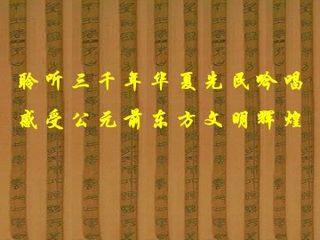 聆听三千年华夏先民吟唱
感受公元前东方文明辉煌